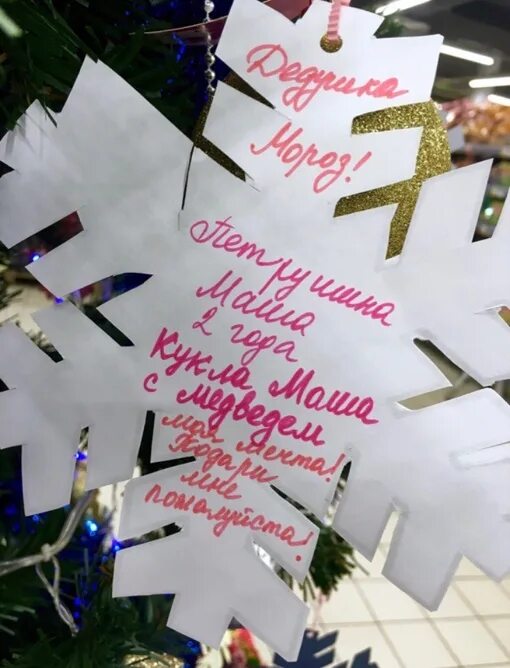 Дедушка
Мороз!
Петрушина
Маша
2 года
Кукла Маша
с медведем
моя мечта!
Подари
мне
пожалуйста!